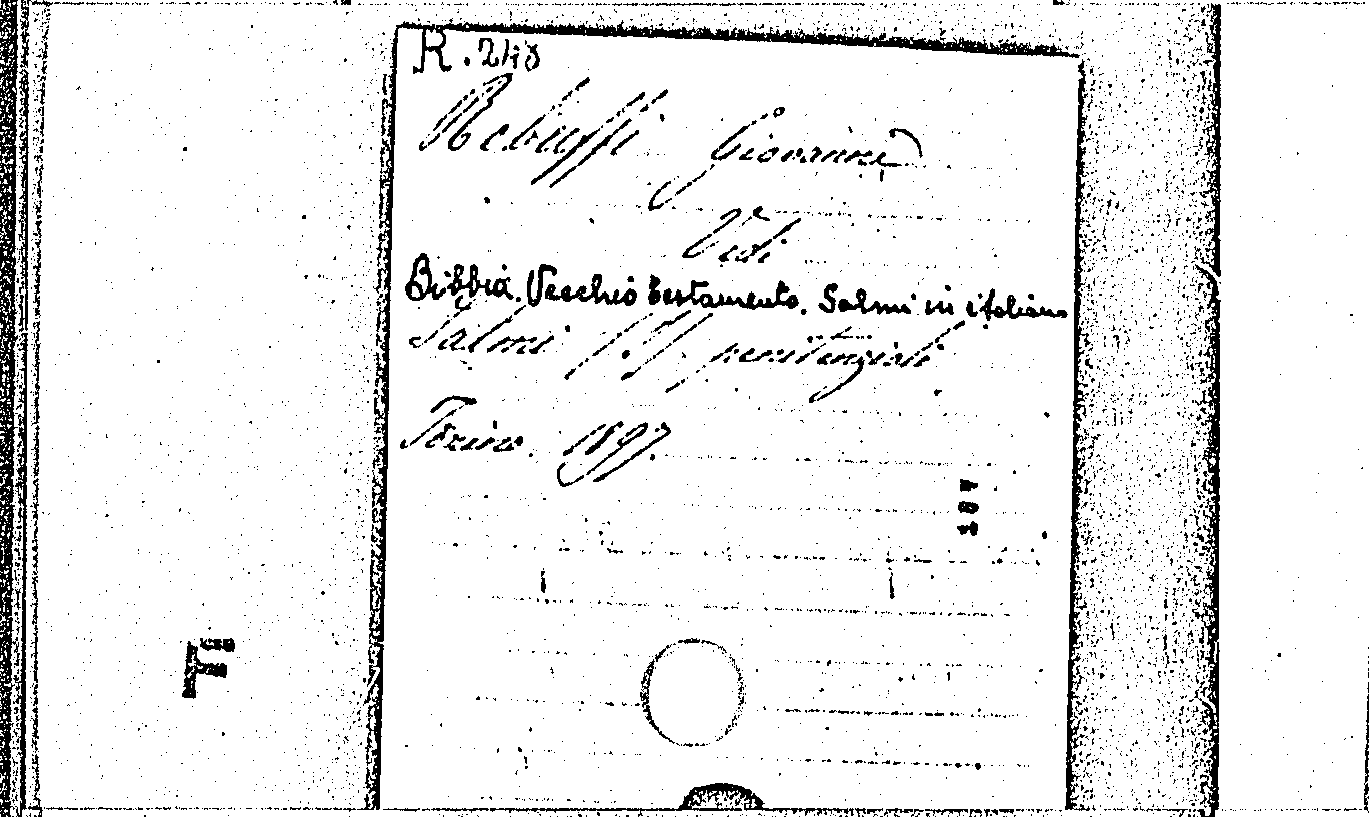 R. 248
Rebuffi Giovanni
Vedi
Bibbia. Vecchio testamento. Salmi in italiano
Salmi penitenziali
Torino. 1897.
F